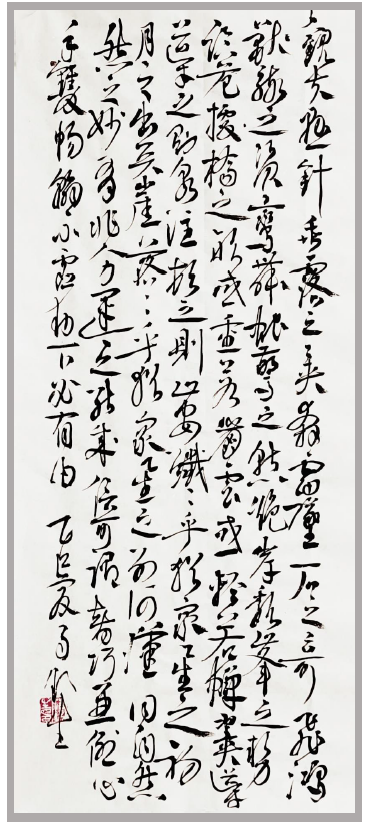 觀夫懸針垂露之異奔雷墜石之奇飛鴻
獸駭之資鸞舞蛇驚之態絕岸頹峯之勢
臨危據槁之形或重若崩雲或輕若蟬翼導
導之則泉注頓之則山安纖〻乎猶衆星之初
月之出天崖落〻乎猶衆星之列河漢同自然
然之妙有非人力運之能成信可謂智巧兼優心
手雙暢翰不虛動下必有由